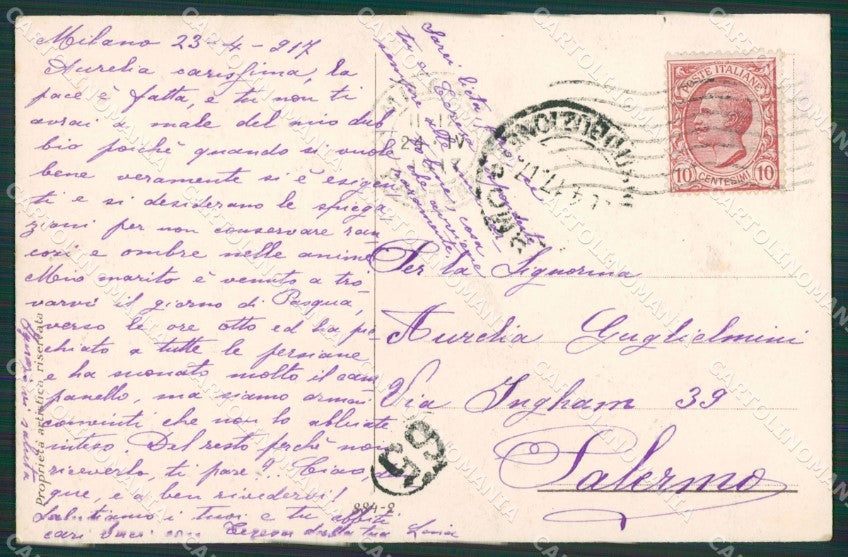 Milano 23-4-917
Aurelia carissima, la
pace è fatta, e tu non ti
avrai a male del mio dub
bio poichè quando si vuole
bene veramente si è esigen
ti e si desiderano le spiega
zioni per non conservare ran
cori e ombre nelle anime
Mio marito è venuto a tro
varvi il giorno di Pasqua,
verso le ore otto ed ha pic
chiato a tutte le persiane
e ha suonato molto il cam
panello, ma siamo ormai
convinti che non lo abbiate
inteso. Del resto perchè non
riceverlo, ti pare? Ciao,
que, e a ben rivederci!
Salutiamo i tuoi e tu abbiti
cari baci con Teresa dalla tua
Sarei lieta
Proprietà artistica riservata
POSTE ITALIANE
10 CENTESIMI 10
Per la Signorina
Aurelia Guglielmini
Via Ingham 39
Palermo
65
884-2
CARTOLINOMANIA